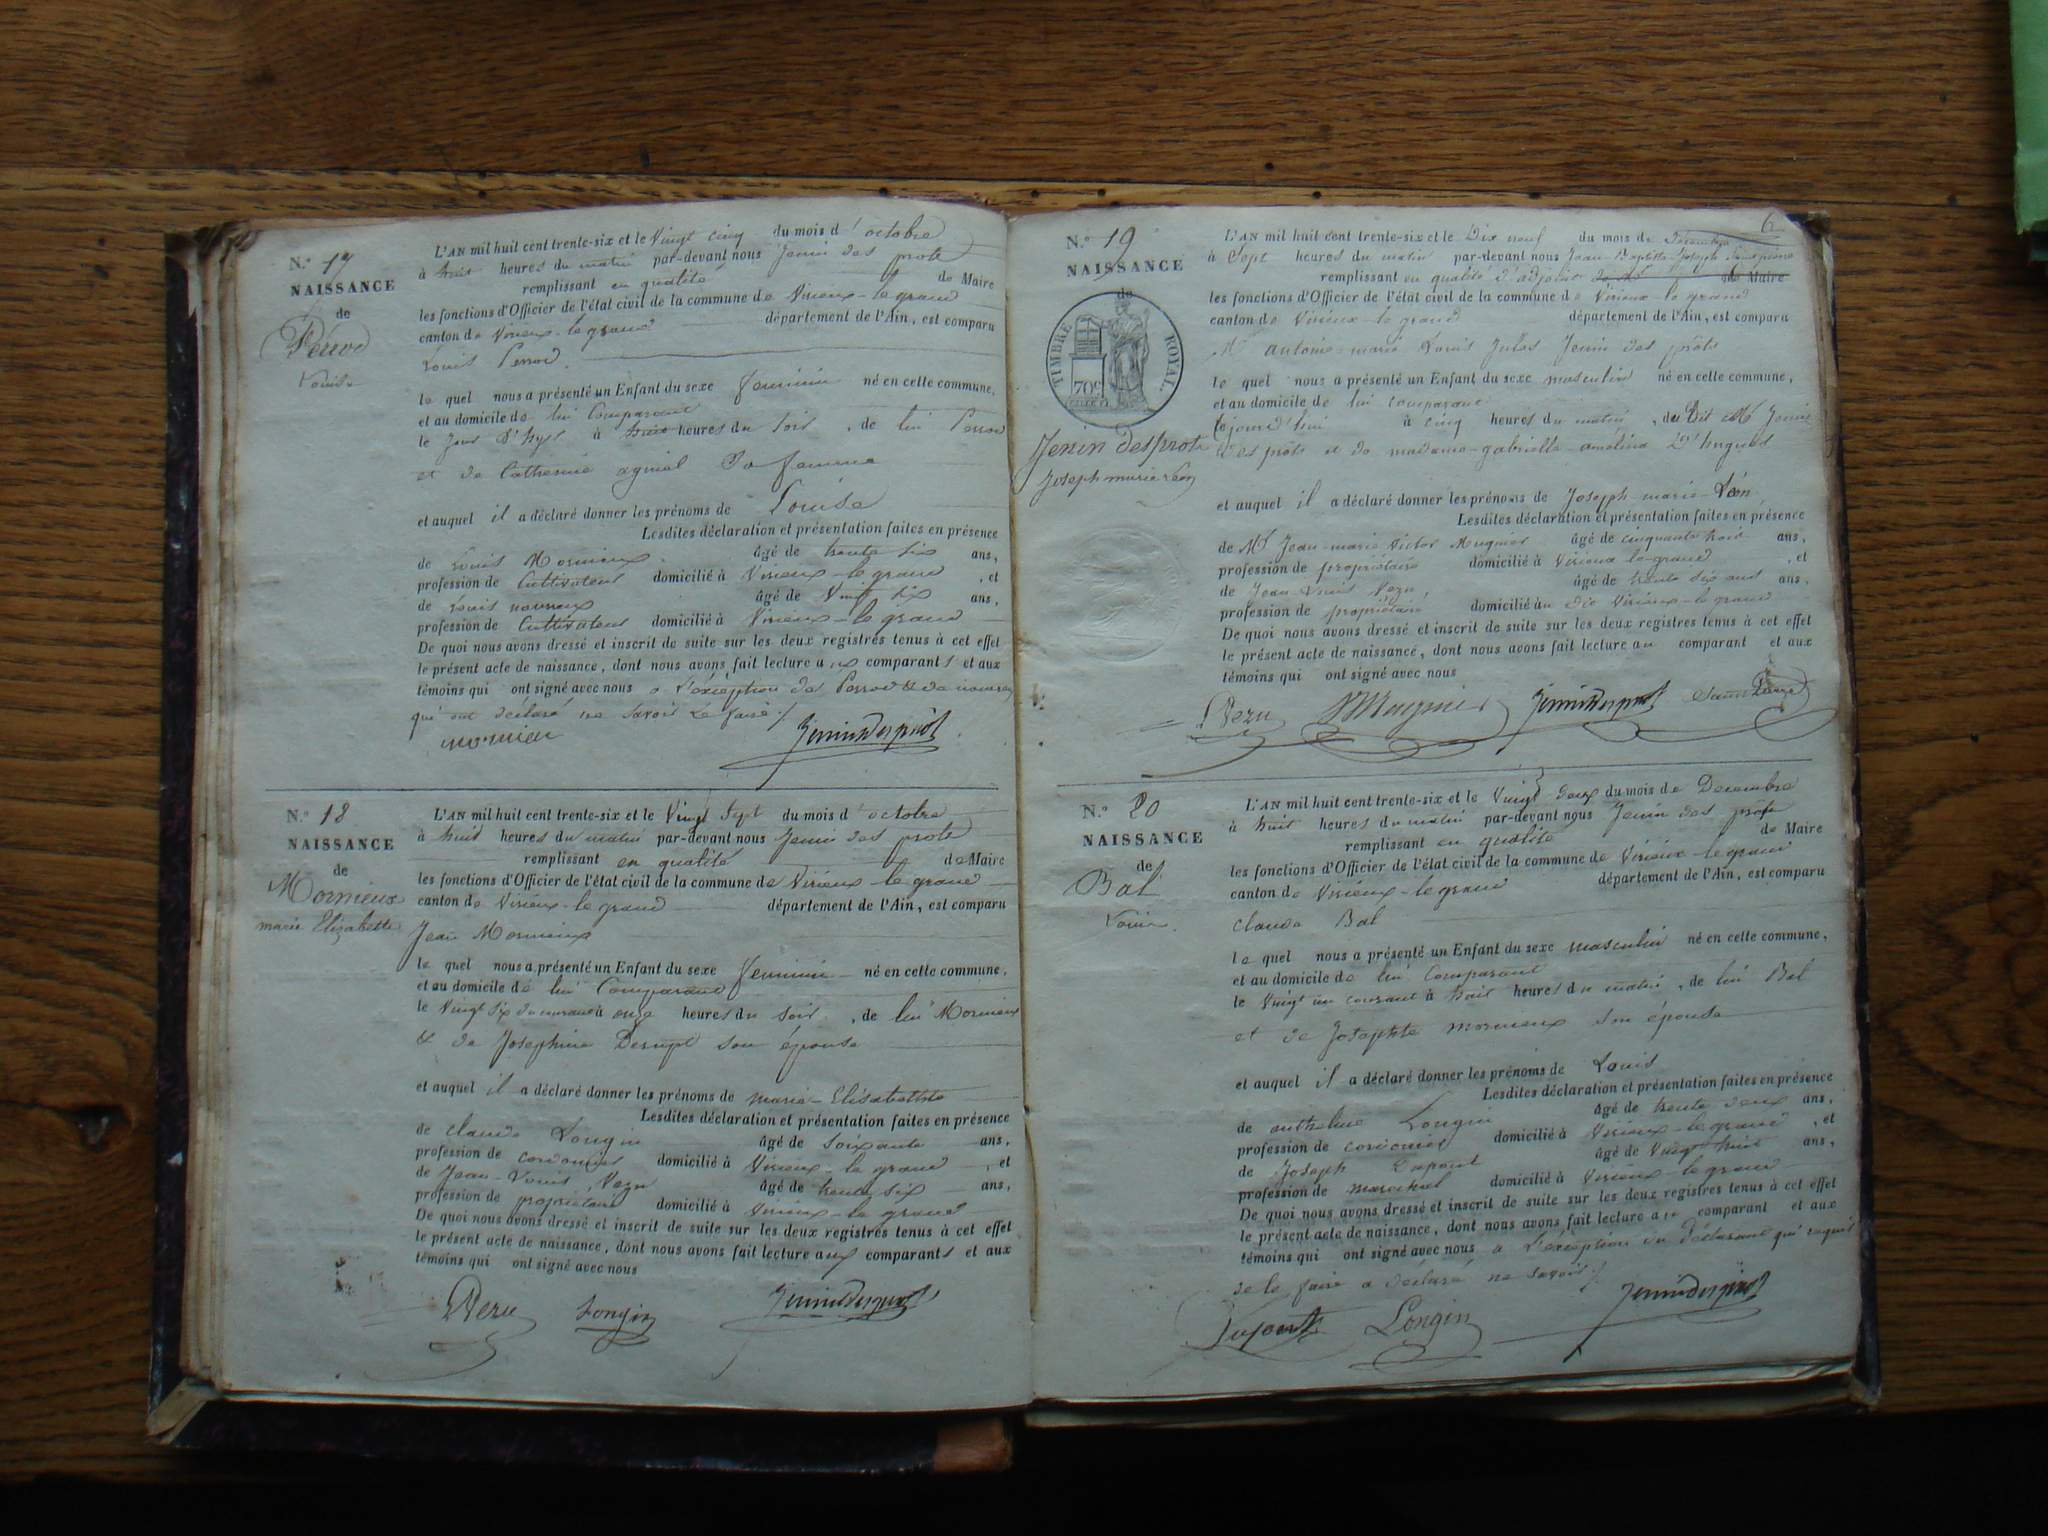 N.º 17
NAISSANCE
de
Perrod
Louise
L'AN mil huit cent trente-six et le Vingt cinq du mois d'octobre
à huit heures du matin par-devant nous Jenin des prots
remplissant en qualité de Maire
les fonctions d'Officier de l'état civil de la commune de Virieux-le grand
canton de Virieux-le grand département de l'Ain, est comparu
Louis Perrod.
le quel nous a présenté un Enfant du sexe féminin né en cette commune,
et au domicile de lui Comparant
le Jour d'hyer à huit heures du soir, de lui Perrod
et de Catherine agniel sa femme
et auquel il a déclaré donner les prénoms de Louise
Lesdites déclaration et présentation faites en présence
de Louis Mornieux âgé de trente six ans,
profession de Cultivateur domicilié à Virieux-le grand, et
de Louis âgé de Vingt six ans,
profession de Cultivateur domicilié à Virieux-le grand
De quoi nous avons dressé et inscrit de suite sur les deux registres tenus à cet effet
le présent acte de naissance, dont nous avons fait lecture aux comparants et aux
témoins qui ont signé avec nous a l'exception de Perrod & de
qui ont déclaré ne savoir le faire ./.
mornieu Jenindesprots
N.º 18
NAISSANCE
de
Mornieux
marie Elizabette
L'AN mil huit cent trente-six et le Vingt Sept du mois d'octobre
à huit heures du matin par-devant nous Jenin des prots
remplissant en qualité de Maire
les fonctions d'Officier de l'état civil de la commune de Virieux-le grand
canton de Virieux-le grand département de l'Ain, est comparu
Jean Mornieux
le quel nous a présenté un Enfant du sexe féminin né en cette commune,
et au domicile de lui Comparant
le Vingt Six du courant à onze heures du soir, de lui Mornieux
& de Josephine Derupt son épouse
et auquel il a déclaré donner les prénoms de marie-Elisabethte
Lesdites déclaration et présentation faites en présence
de claude Longin âgé de soixante ans,
profession de cordonnier domicilié à Virieux-le grand, et
de Jean-Louis Vezu âgé de trente six ans,
profession de propriétaire domicilié à Virieux-le grand
De quoi nous avons dressé et inscrit de suite sur les deux registres tenus à cet effet
le présent acte de naissance, dont nous avons fait lecture aux comparants et aux
témoins qui ont signé avec nous
Vezu Longin Jenindesprots
6
N.º 19
NAISSANCE
de
TIMBRE ROYAL
70c
Jenin desprots
Joseph marie Léon
L'AN mil huit cent trente-six et le Dix neuf du mois de Décembre
à Sept heures du matin par-devant nous Jean Baptiste Joseph
remplissant en qualité d'adjoint de Maire
les fonctions d'Officier de l'état civil de la commune de Virieux-le grand
canton de Virieux-le grand département de l'Ain, est comparu
Mr antoine-marie Louis Jules Jenin des prôts
le quel nous a présenté un Enfant du sexe masculin né en cette commune,
et au domicile de lui comparant
le jour d'hui à cinq heures du matin, du Dit Mr Jenin
des prôts et de madame-gabrielle-amélina
et auquel il a déclaré donner les prénoms de Joseph-marie-Léon
Lesdites déclaration et présentation faites en présence
de Mr Jean-marie Victor Mugnier âgé de cinquante huit ans,
profession de propriétaire domicilié à Virieux le-grand, et
de Jean Louis Vezu âgé de trente six ans ans,
profession de propriétaire domicilié au dit Virieux-le grand
De quoi nous avons dressé et inscrit de suite sur les deux registres tenus à cet effet
le présent acte de naissance, dont nous avons fait lecture au comparant et aux
témoins qui ont signé avec nous
Vezu Mugnier Jenindesprots
N.º 20
NAISSANCE
de
Bal
Louis
L'AN mil huit cent trente-six et le Vingt deux du mois de Decembre
à huit heures du matin par-devant nous Jenin des prots
remplissant en qualité de Maire
les fonctions d'Officier de l'état civil de la commune de Virieux-le grand
canton de Virieux-le grand département de l'Ain, est comparu
Claude Bal
le quel nous a présenté un Enfant du sexe masculin né en cette commune,
et au domicile de lui Comparant
le Vingt un courant à huit heures du matin, de lui Bal
et de Josephte mornieux son épouse
et auquel il a déclaré donner les prénoms de Louis
Lesdites déclaration et présentation faites en présence
de anthelme Longin âgé de trente deux ans,
profession de cordonnier domicilié à Virieux-le grand, et
de Joseph Dupont âgé de Vingt huit ans,
profession de marechal domicilié à Virieux-le grand
De quoi nous avons dressé et inscrit de suite sur les deux registres tenus à cet effet
le présent acte de naissance, dont nous avons fait lecture au comparant et aux
témoins qui ont signé avec nous a l'exception du déclarant qui requis
de le faire a déclaré ne savoir ./.
Dupont Longin Jenindesprots